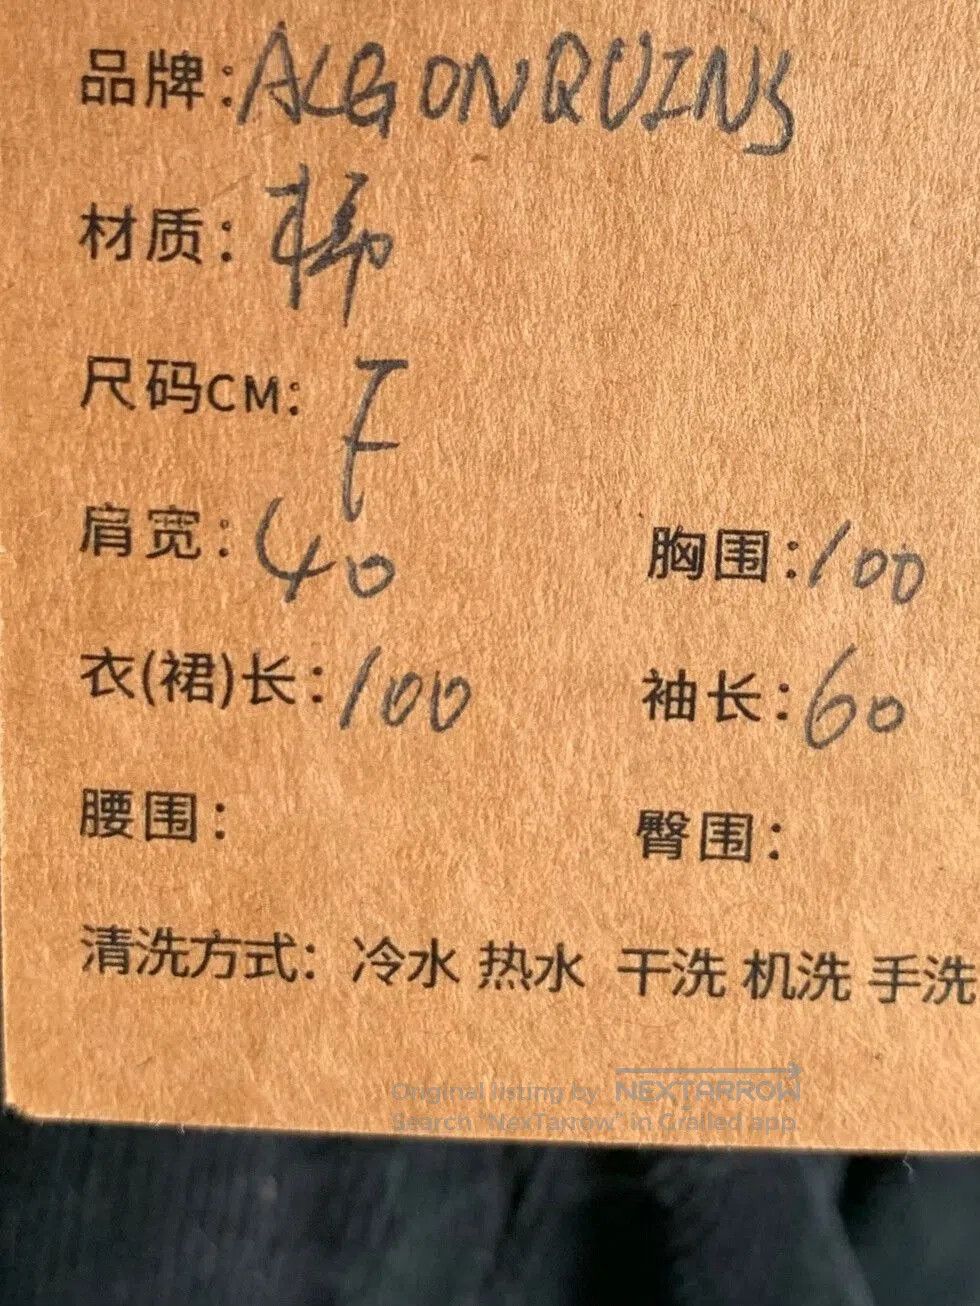 品牌:ALGONQUINS
材质:棉
尺码CM: F
肩宽:40 胸围:100
衣(裙)长:100 袖长:60
腰围: 臀围:
清洗方式: 冷水 热水 干洗 机洗 手洗
Original listing by NEXTARROW
Search "NexTarrow" in Grailed app.